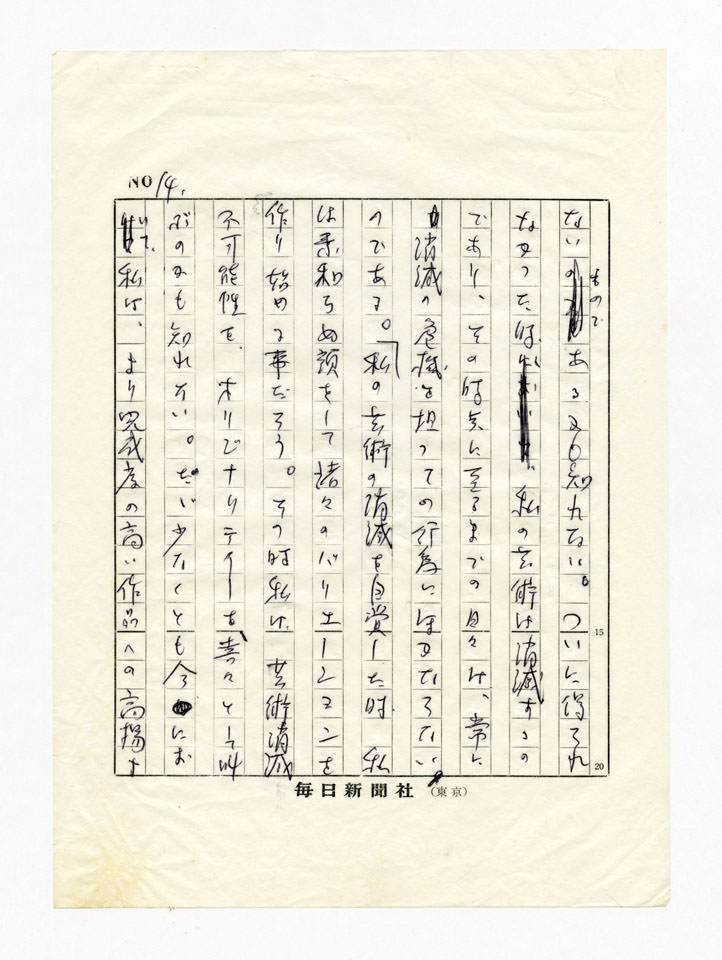 NO 14.
ないものであるかも知れない。ついに得られ
なかった時、私の芸術は消滅するの
であり、その時点に至るまでの日々は、常に
消滅の危機を担っての行為にほかならない
のである。「私の芸術の消滅を自覚した時、私
は素知らぬ顔をして諸々のバリエーションを
作り始める事だろう。その時私は、芸術消滅
不可能性を、オリジナリティーを喜々として叫
ぶのかも知れない。だが少なくとも今にお
いて、私は、より完成度の高い作品への高揚よ
15
20
毎日新聞社(東京)